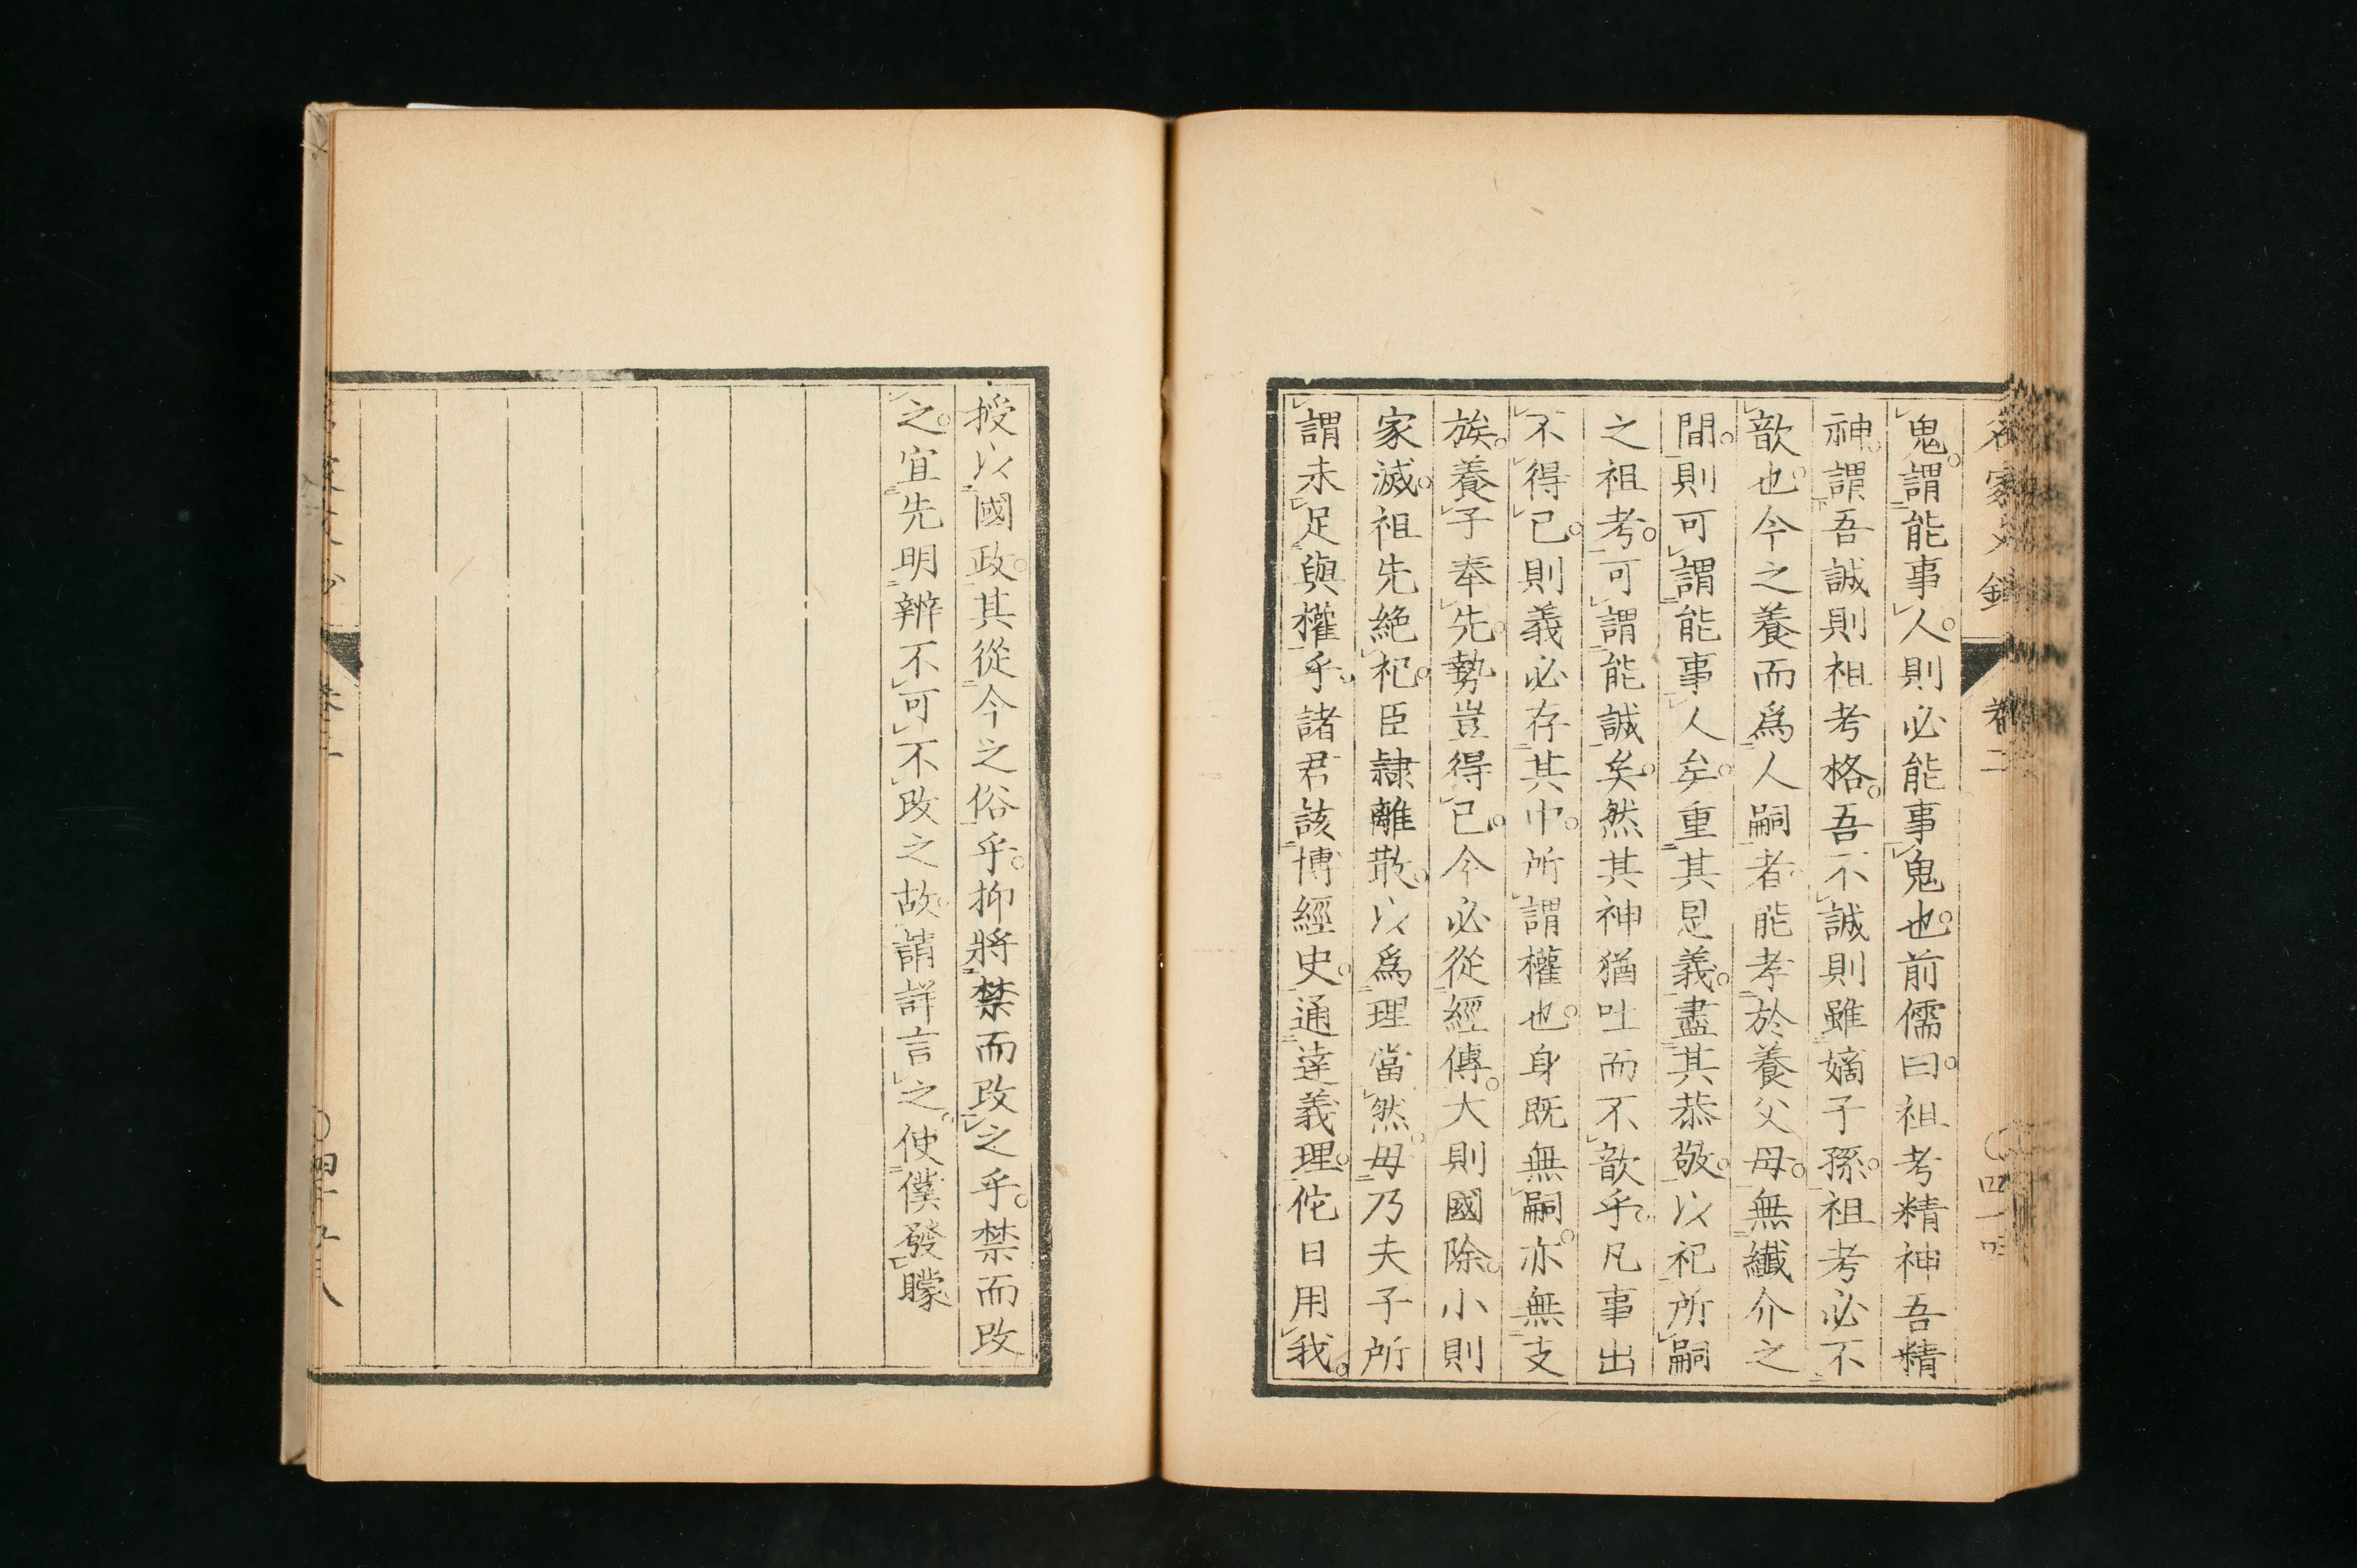 鬼。謂能事人。則必能事鬼也。前儒曰。祖考精神吾精
神。謂吾誠則祖考格。吾不誠則雖嫡子孫。祖考必不
歆也。今之養而爲人嗣者。能孝於養父母。無纖介之
間。則可謂能事人矣。重其恩義。盡其恭敬。以祀所嗣
之祖考。可謂能誠矣。然其神猶吐而不歆乎。凡事出
不得已。則義必存其中。所謂權也。身既無嗣。亦無支
族。養子奉先。勢豈得已。今必從經傳。大則國除。小則
家滅。祖先絶祀。臣隷離散。以爲理當然。毋乃夫子所
謂未足與權乎。諸君該博經史。通達義理。佗日用我。
授以國政。其從今之俗乎。抑將禁而改之乎。禁而改
之。宜先明辨不可不改之故。請詳言之。使僕發矇
卷二